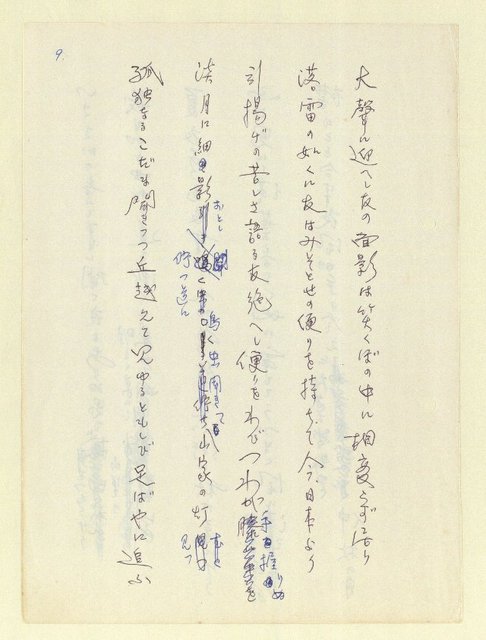 9.
大聲に迎へし友の面影は笑くぼの中に相変らず在り
落雷の如くに友はみそとせの便りを持ちて今日本より
引揚げの苦しさ語る友絶へし便りをわびつわが手握りぬ
淡月に細き影おとし 鳴く虫聞きて 佇つ道に 山家の灯見つ
孤独なるこだま聞きつつ丘越えて見ゆるともしび足ばやに追ふ